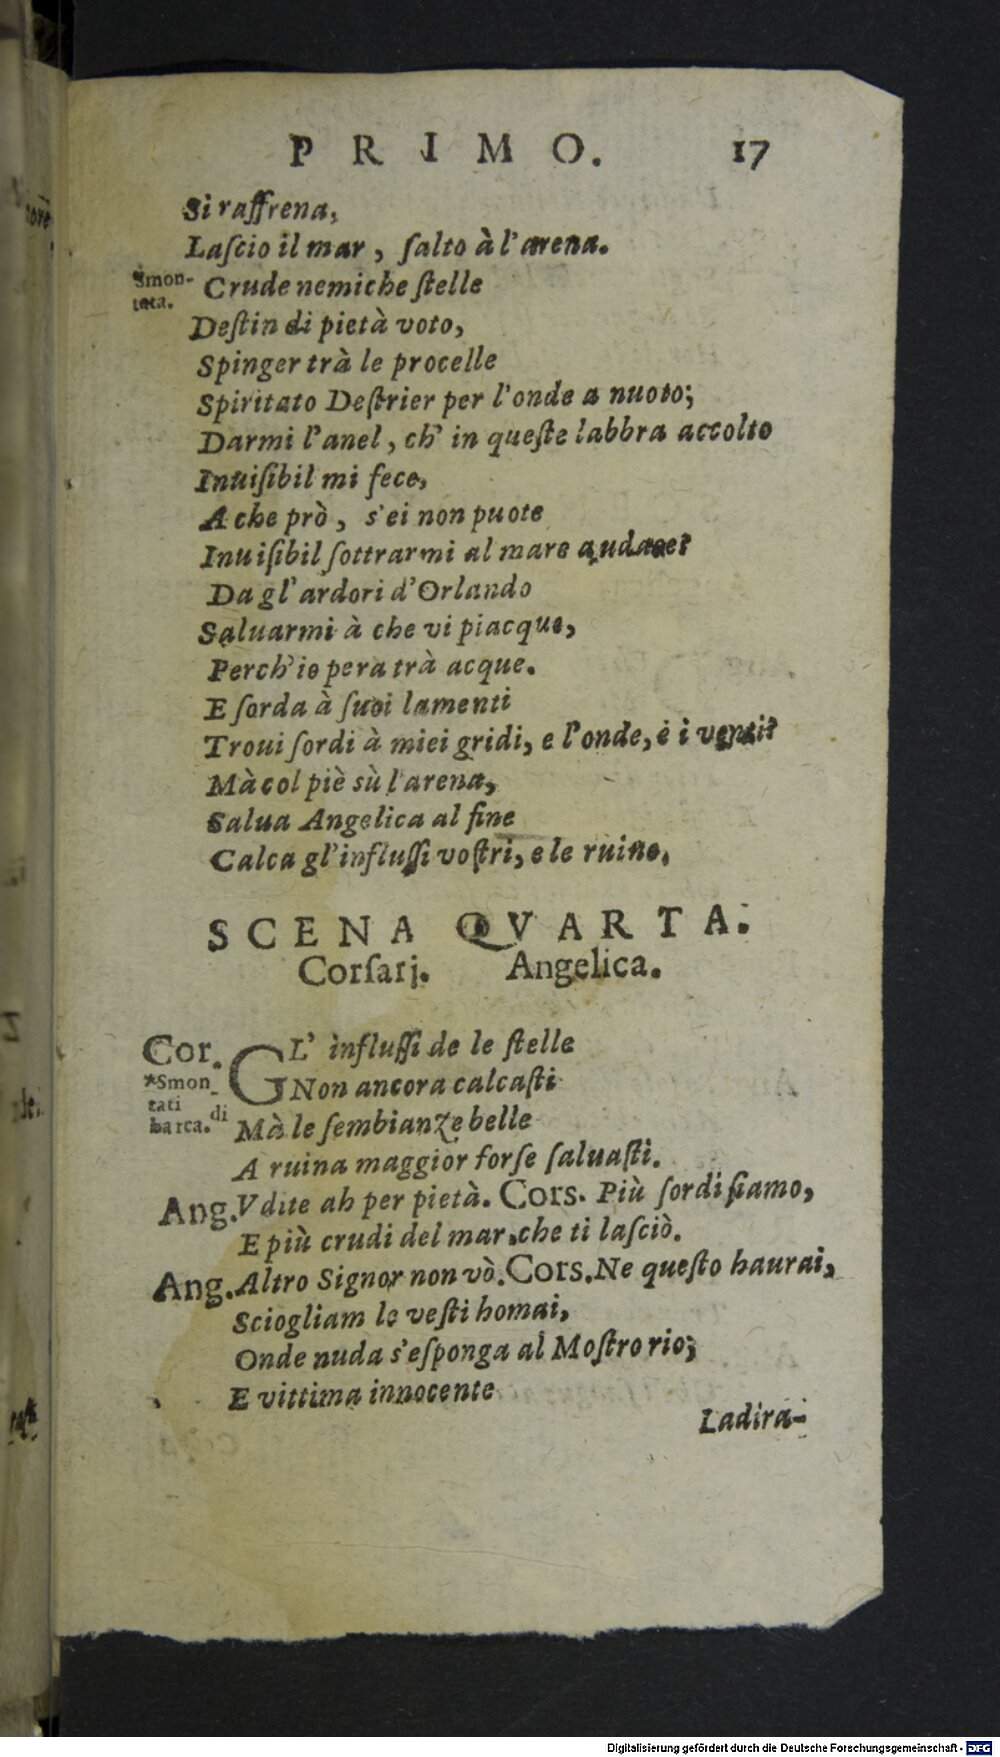 PRIMO. 17
Si raffrena,
Laſcio il mar, ſalto à l'arena.
Smon-
tata.
Crude nemiche ſtelle
Deſtin di pietà voto,
Spinger trà le procelle
Spiritato Deſtrier per l'onde a nuoto;
Darmi l'anel, ch' in queſte labbra accolto
Inuiſibil mi fece,
A che prò, s'ei non puote
Inuiſibil ſottrarmi al mare audace?
Da gl' ardori d'Orlando
Saluarmi à che vi piacque,
Perch'io pera trà acque.
E ſorda à ſuoi lamenti
Troui ſordi à miei gridi, e l'onde, e i venti?
Mà col piè sù l'arena,
Salua Angelica al fine
Calca gl'influſſi voſtri, e le ruine,
SCENA QVARTA.
Corſarj. Angelica.
Cor. GL' influſſi de le ſtelle
*Smon-
tati di
barca.
Non ancora calcaſti
Mà le ſembianze belle
A ruina maggior forſe ſaluaſti.
Ang. Vdite ah per pietà. Cors. Più ſordi ſiamo,
E più crudi del mar, che ti laſciò.
Ang. Altro Signor non vò. Cors. Ne queſto haurai,
Sciogliam le veſti homai,
Onde nuda s'eſponga al Moſtro rio;
E vittima innocente
Ladira-
Digitalisierung gefördert durch die Deutsche Forschungsgemeinschaft - DFG